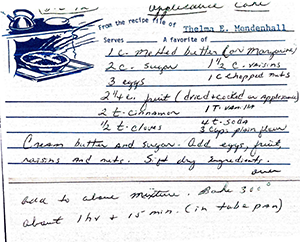 Applesauce Cake
From the recipe file of Thelma E. Mendenhall
Serves A favorite of
1 c. melted butter (or Margarine)
2 c. sugar 1 1/2 c. raisins
3 eggs 1 c chopped nuts
2 1/4 c. fruit (dried + cooked or applesauce)
2 t. cinnamon 1 T. vanilla
1/2 t. cloves 4 t. soda
3 cups plain flour
Cream butter and sugar. Add eggs, fruit,
raisins and nuts. Sift dry ingredients.
over
add to above mixture. Bake 300°
about 1 hr + 15 min. (in tube pan)